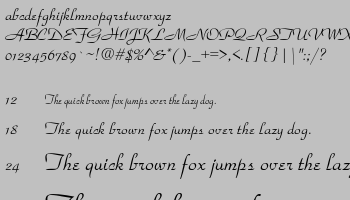 abcdefghijklmnopqrstuvwxyz
ABCDEFGHIJKLMNOPQRSTUVWX
0123456789`~!@#$%^&*()-_+=>,<.[]{}|\":;/?
12 The quick brown fox jumps over the lazy dog.
18 The quick brown fox jumps over the lazy dog.
24 The quick brown fox jumps over the laz